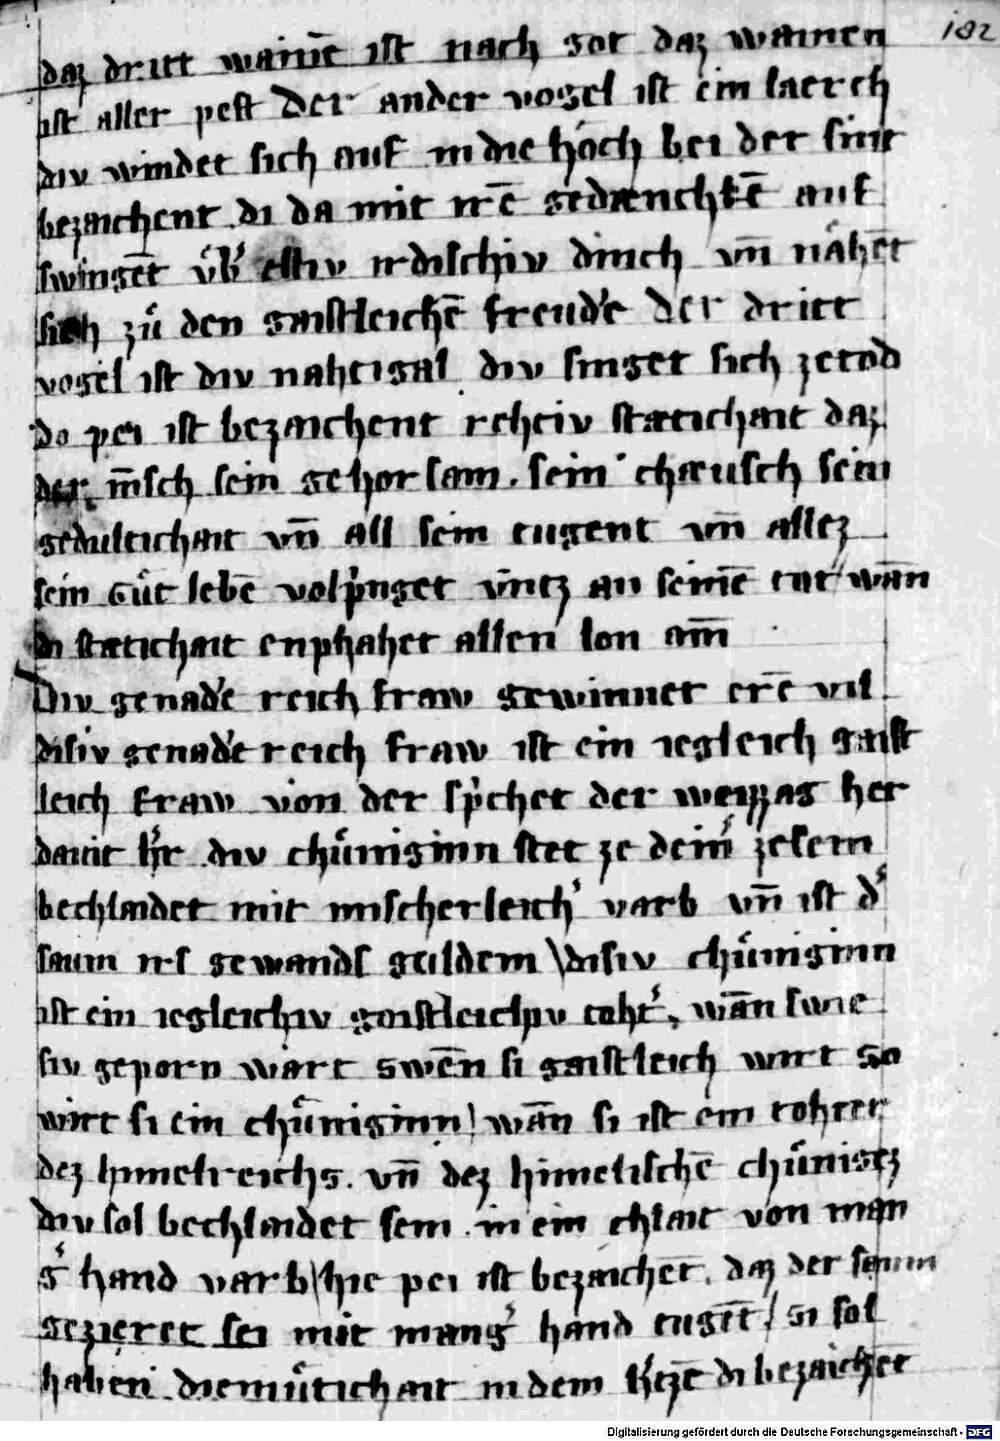 182
daz dritt wainē ist nach got daz wainen
ist aller pest Der ander vogel ist ein laerch
div windet sich auf in die hoͤch bei der sint
bezaichent di da mit irē gedænchkē auf
swingēt vͤb' elliv irdischiv dinch vn̄ nåhēt
sich zů den gaistleichē freud'e Der dritt
vogel ist div nahtigal div singet sich ze tod
do pei ist bezaichent rehtiv stætichait daz
der m̄sch sein gehorsam . sein chæusch sein
gedultichait vn̄ all sein tugent vn̄ allez
sein gůt lebē volp'nget vntz an seinē tot wān
di stætichait enphahet allen lon am̄
Div genad'e reich fraw gewinnet erē vil
disiv genad'e reich fraw ist ein iegleich gaist
leich fraw von der sp'chet der weizzag her
dauit h'r div chůniginn stet ze dein' zesem
bechlaidet mit mischerleich' varb vn̄ ist d'
saum irs gewands guldein disiv chůniginn
ist ein iegleichiv gaistleichiv toht' . wān swie
siv geporn wart swēn si gaistleich wirt so
wirt si ein chůniginn wān si ist ein tohter
dez himelreichs . vn̄ dez himelischē chůnigez
div sol bechlaidet sein . in ein chlait von man
g' hand varb hie pei ist bezaichēt . daz der saum
gezieret sei mit mang' hand tugēt / si sol
haben diemůtichait in dem h'tzē di bezaichēt
Digitalisierung gefördert durch die Deutsche Forschungsgemeinschaft - DFG